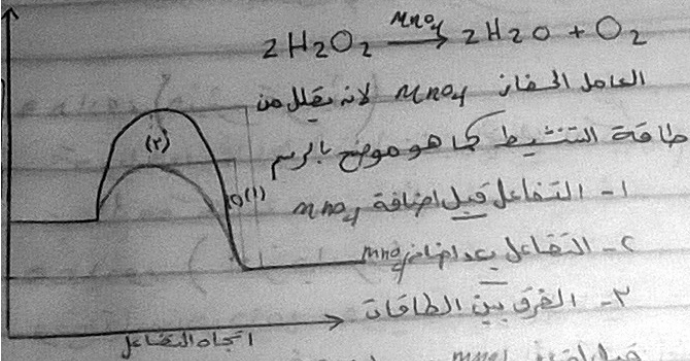 2H2O2 MnO4→ 2H2O + O2
العامل الحفاز MnO4 لانه يقلل من
طاقة التنشيط كما هو موضح بالرسم
(٣)
(١)
١- التفاعل قبل اضافة MnO4
٢- التفاعل بعد اضافة MnO4
٣- الفرق بين الطاقات
اتجاه التفاعل